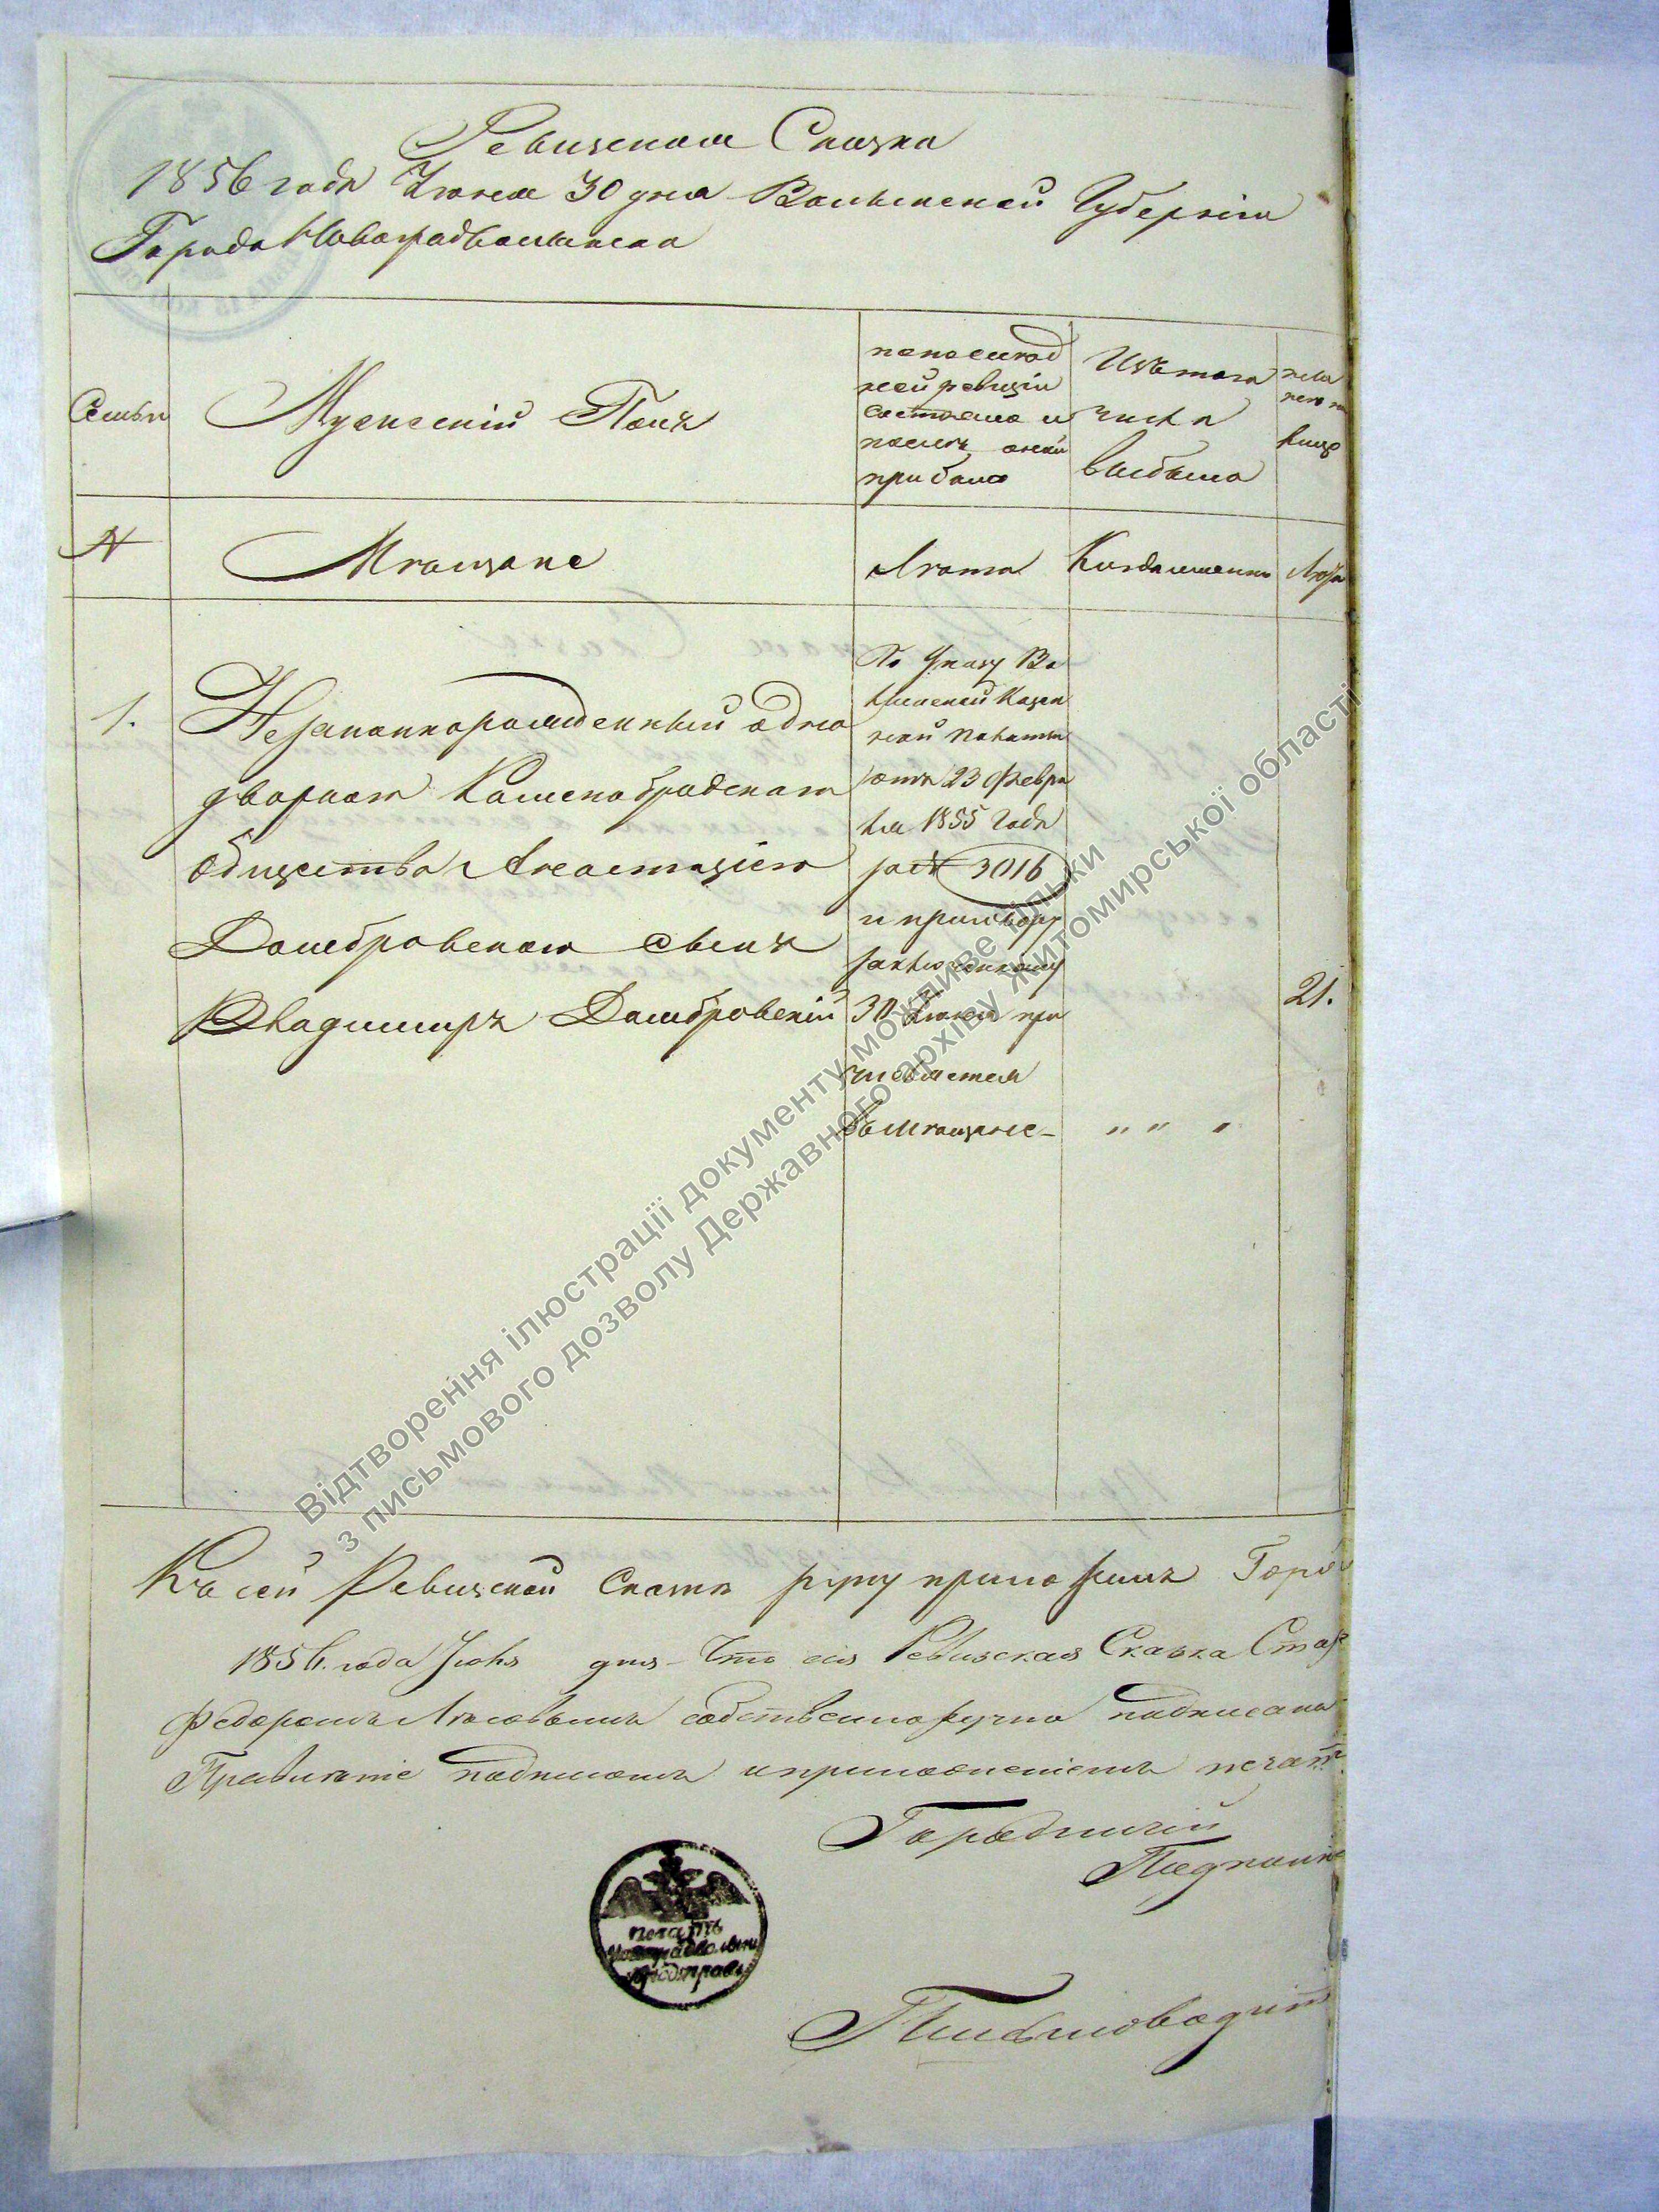 Ревизская Сказка
1856 года Июня 30 дня Волынской Губерніи
Города Новоградволынска
Семьи
Мужескій Полъ
по послѣд
ней ревизіи
состояло и
послѣ оной
прибыло
Изъ того
числа
выбыло
№
Мѣщане
Лѣта
Когда именно
Лѣта
1.
Незаконнорожденный одно
дворки Каменобродскаго
общества Анастазіи
Домбровской сынъ
Владимиръ Домбровскій
По Указу Во
лынской Казен
ной Палаты
отъ 23 Февра
ля 1855 года
за № 3016
и приговору
заключенному
30 Июня при
числяется
въ мѣщане –
" " "
21.
Къ сей Ревизской Сказкѣ руку приложилъ Горо
1856 года Июня дня Что сія Ревизская Сказка Ста
Федоромъ Лясовымъ собственноручно подписана
подписомъ и приложеніемъ печат
Городничій
Подполк
печать
Письмоводит
Відтворення ілюстрації документу можливе тільки
з письмового дозволу Державного архіву Житомирської області